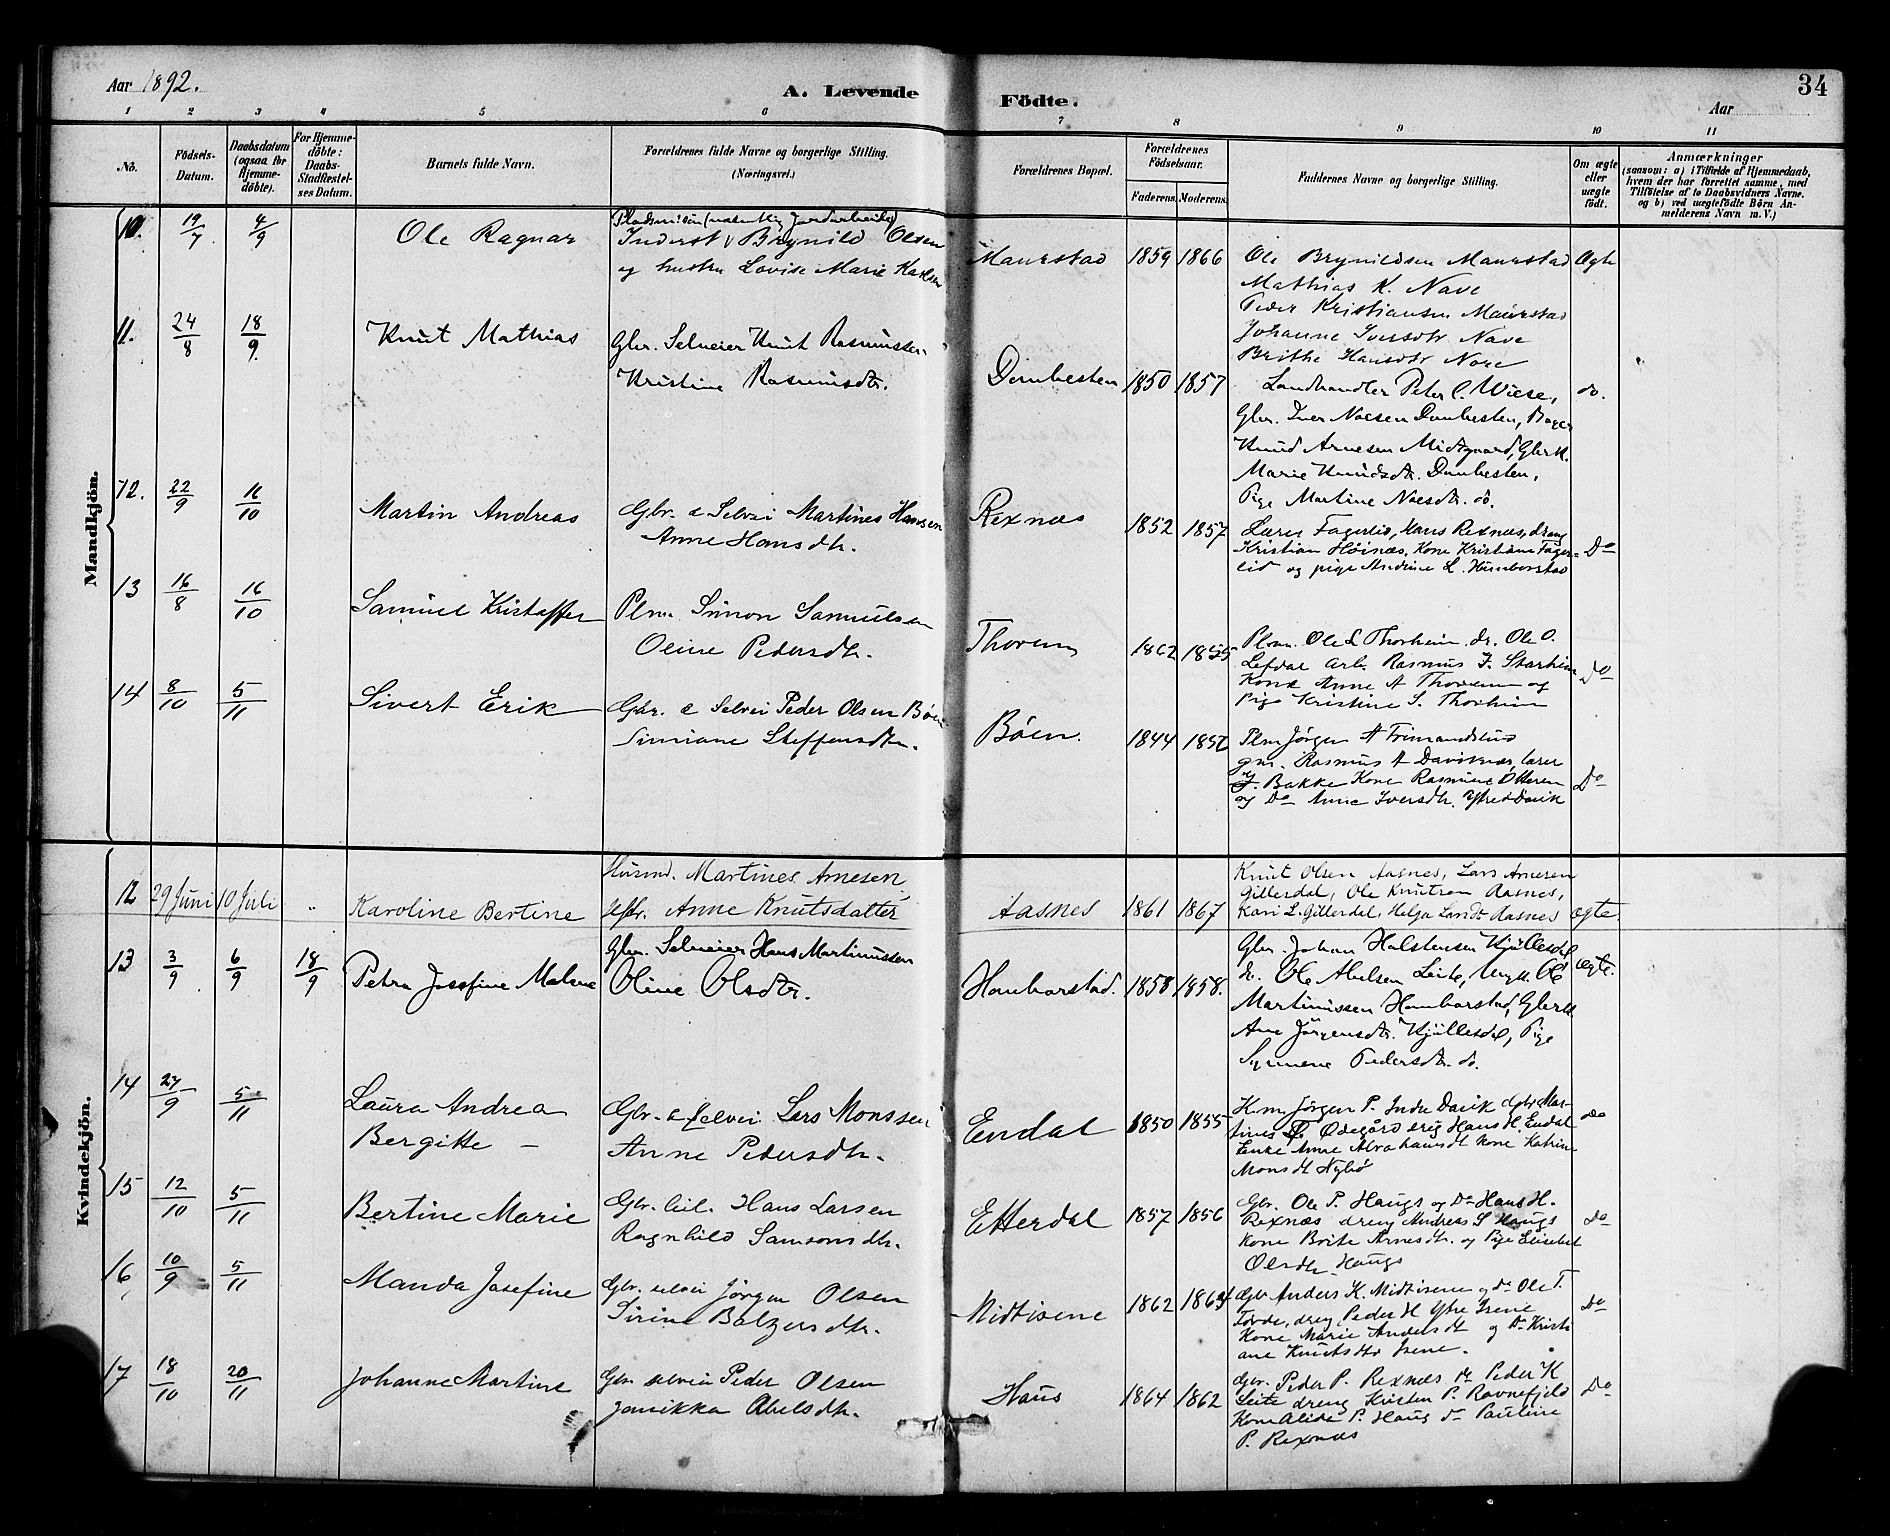 Aar 1892.
A. Levende Födte.
Aar
34
1 2 3 4 5 6 7 8 9 10 11
No.
Födsels-Datum.
Daabsdatum (ogsaa for Hjemme-döbte).
For Hjemme-döbte: Daabs-Stadfæstel-ses Datum.
Barnets fulde Navn.
Forældrenes fulde Navne og borgerlige Stilling. (Næringsvei.)
Forældrenes Bopæl.
Forældrenes Födselsaar.
Faderens. Moderens.
Faddernes Navne og borgerlige Stilling.
Om ægte eller uægte födt.
Anmærkninger
(saasom: a) i Tilfælde af Hjemmedaab, hvem der har forrettet samme, med Tilföielse af to Daabsvidners Navne. og b) ved uægtefödte Börn An-melderens Navn m. V.)
Mandkjön.
10. 19/7 4/9 Ole Ragnar
Inderst Brynild Olsen
og hustru Lovise Marie
Maurstad 1859 1866
Ole Brynildsen Maurstad Ægte
Mathias K. Nave
Peder Kristiansen Maurstad
Johanne Iversdtr Nave
Brithe Hansdtr Nore
11. 24/8 18/9 Knut Mathias
Gbr. Selveier Knut Rasmussen
Kristine Rasmusdtr.
Dombesten 1850 1857
Landhandler Peter C. Wiese, do.
Gbr. Iver Nilsen Dombesten,
Knud Arnesen Midtgaard, Gbrk.
Marie Knudsdtr. Dombesten,
Pige Martine
12. 22/9 16/10 Martin Andreas
Gbr. & Selvei Martines Hansen
Anne Hansdtr.
Rexnæs 1852 1857
Lærer Fagerlid, Hans Rexnæs, dreng
Kristian Høinæs, Kone Kristiane Fager- Do
lid og pige Andrine L. Humborstad
13 16/8 16/10 Samuel Kristoffer
Plm. Simon Samuelsen
Oline Pedersdtr.
Thorem 1862 1855
Plm. Ole S. Thorheim dr. Ole O.
Lefdal arb. Rasmus J. Starheim Do
Kone Anne A Thorem og
Pige Kristine S. Thorheim
14 8/10 5/11 Sivert Erik
Gbr. & Selvei Peder Olsen Bøen
Simiane Steffensdtr.
Bøen. 1844
Plm Jørgen A
gm. Rasmus A Daviknes, lærer
J. Bakke Kone Rasmine Do
og Do Anne Iversdtr. Ytre Davik
Kvindekjön.
12 29 Juni 10 Juli " Karoline Bertine
Husmd. Martines Arnesen,
Anne Knutsdatter
Aasnes 1861 1867
Knut Olsen Aasnes, Lars Arnesen
Gillerdal, Ole Knutsen Aasnes,
Kari L. Gillerdal, Helga Aasnes ægte
13 3/9 6/9 18/9 Petra Josefine Malene
Gbr. Selveier Hans Martinussen
Oline Olsdtr.
Hombarstad. 1858 1858.
Gbr. Johan Halstensen Kjøllesdal ægte.
dr. Ole Abelsen Leite, Ungk. Ole
Martinussen Hombarstad, Gbrk
Ane Jörgensdtr. Kjøllesdal, Pige
Pedersdtr. do.
14 27/9 5/11 Laura Andrea
Bergitte —
Gbr. & selvei Lars Monssen
Anne Pedersdtr.
Endal 1850 1855
Jørgen P. Indre Davik Mar- do
tines Ødegård dreng Hans H. Endal
Enke Anne Abrahamsdt kone Katrine
Monsdt Nybø
15 12/10 5/11 Bertine Marie
Gbr. Hans Larsen
Ragnhild Samsonsdtr.
Etterdal 1857 1856
Gbr. Ole P. Haugs og Do Hans H.
Rexnæs dreng Andreas S Haugs do
Kone Brite Arnesdtr. og Pige Elisabet
Olsdtr Haugs
16, 10/9 5/11 Manda Josefine
Gbr. selvei Jörgen Olsen
Sirine Balzersdtr.
Midtisene 1862
Gbr Anders K. Midtisene og do Ole T.
dreng Peder H Ytre Isene Do
Kone Marie Andersdt og Do Kristi
ane Knutsdtr Isene.
17 18/10 20/11 Johanne Martine
Gbr. selvei Peder Olsen
Janikka Abelsdtr.
Haus 1864 1862
Gbr. Peder P. Rexnæs Do Peder K
Leite dreng Kristen P. Ravnefjeld Do
Kone Alida P. Haug do Pauline
P. Rexnæs